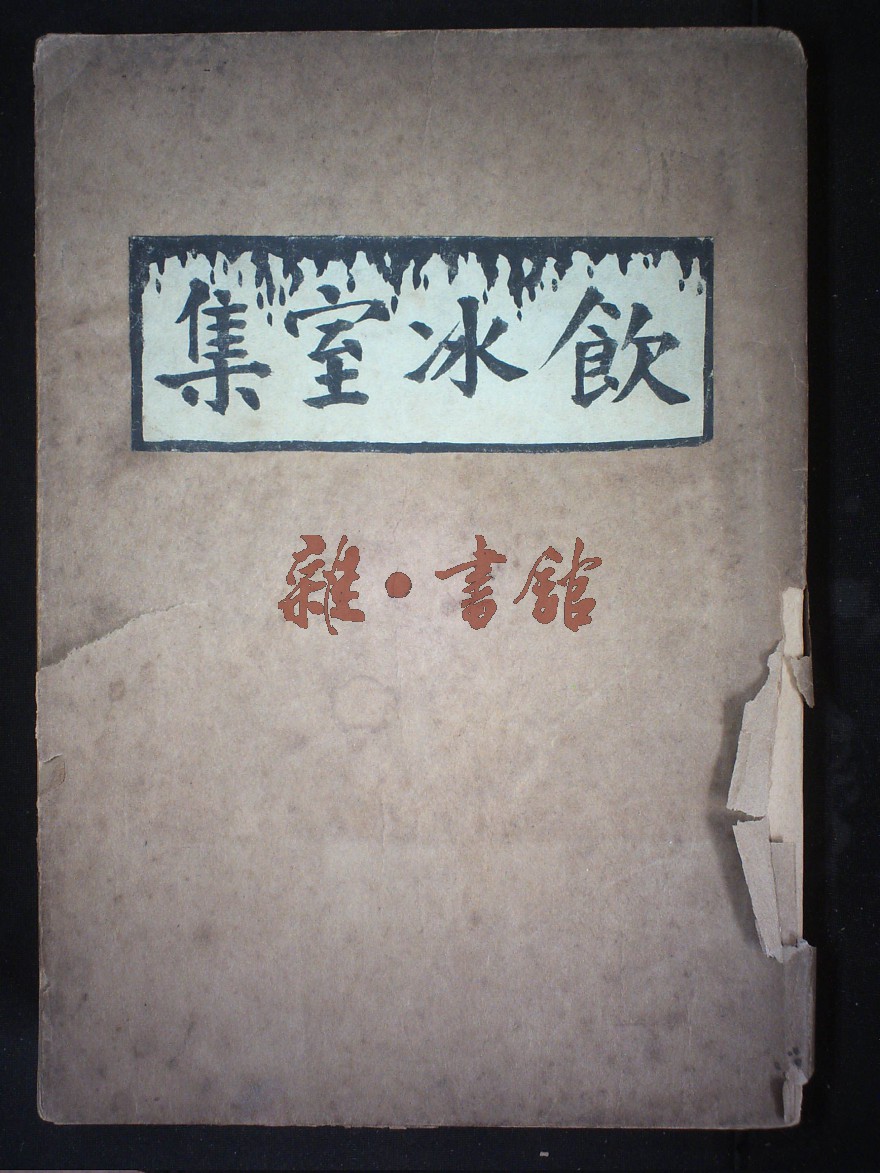 飲冰室集
雜·書館